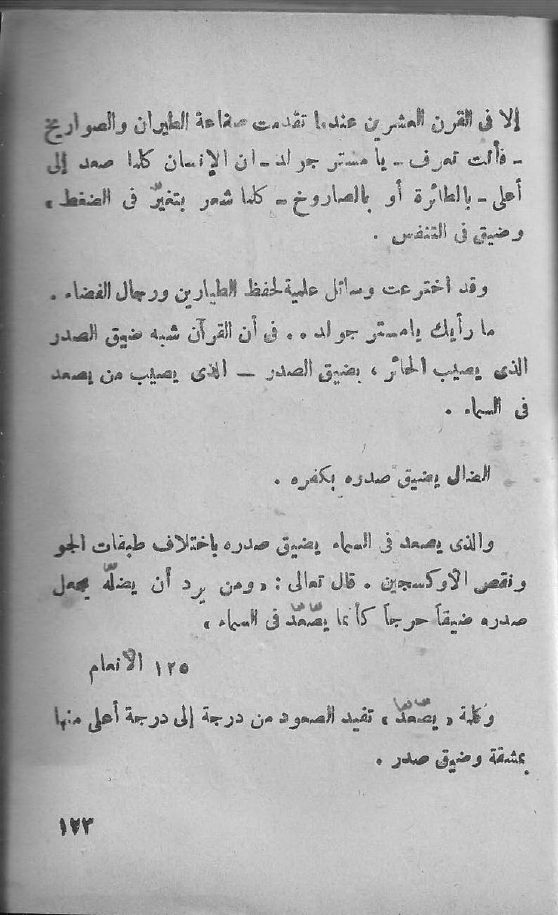 إلا فى القرن العشرين عندما تقدمت صناعة الطيران والصواريخ
- فأنت تعرف - يا مستر جولد - ان الإنسان كلما صعد إلى
أعلى - بالطائرة أو بالصاروخ - كلما شعر بتغيّر فى الضغط ،
وضيق فى التنفس .
وقد اخترعت وسائل علمية لحفظ الطيارين ورجال الفضاء .
ما رأيك يامستر جولد . . فى أن القرآن شبه ضيق الصدر
الذى يصيب الحائر ، بضيق الصدر – الذى يصيب من يصعد
فى السماء .
الضال يضيق صدره بكفره .
والذى يصعد فى السماء يضيق صدره باختلاف طبقات الجو
ونقص الأوكسجين . قال تعالى : « ومن يرد أن يضلّه يجعل
صدره ضيقاً حرجاً كأنما يصّعّد فى السماء »
١٢٥ الأنعام
وكلمة « يصّعّد » تفيد الصعود من درجة إلى درجة أعلى منها
بمشقة وضيق صدر .
١٢٣